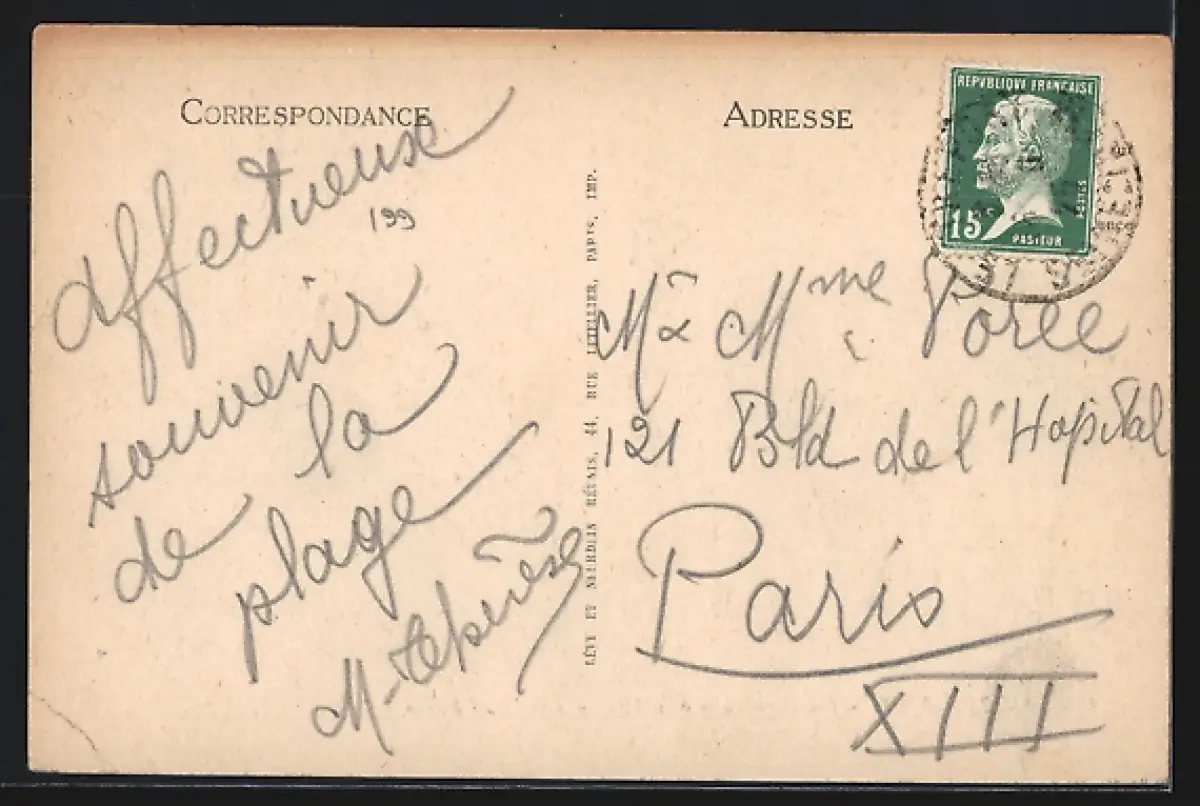 CORRESPONDANCE
Affectueux
199
souvenir
de la
plage
M-Thérèse
LÉVY ET NEURDEIN RÉUNIS, 44, RUE LETELLIER, PARIS, IMP.
ADRESSE
REPVBLIQVE FRANÇAISE
15c
POSTES
PASTEUR
Mr & Mme Porée
121 Bld de l'Hopital
Paris
XIII